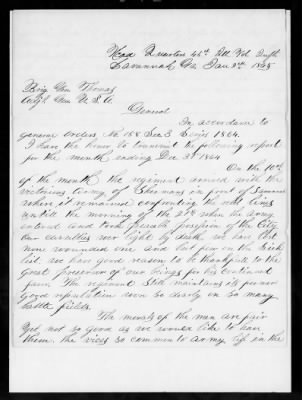 Head Quarters 46th Ill Vol Infty
Savannah Ga Jan 2nd 1865
Brig Gen Thomas
Adjt Gen U. S. A.
General
In accordance to
General orders No 158 Sec 3 Series 1864.
I have the honor to transmit the following report
for the month ending Dec 31st 1864
On the 10th
of the month the regiment arrived with the
victorious army of Shermans in front of Savannah
where it remained confronting the reb lines
untill the morning of the 21st when the army
entered and took peaceable possession of the City
Our casulties ware light
more wounded one and but few on the Sick
list. we have good reason to be thankfull to the
Great preserver of our beings for his continued
favor. The regiment Still maintains its former
Good reputation won so dearly on so many
battle fields.
The morals of the men are fair
yet not so good as we would like to have
them. the vices so common to army life in the